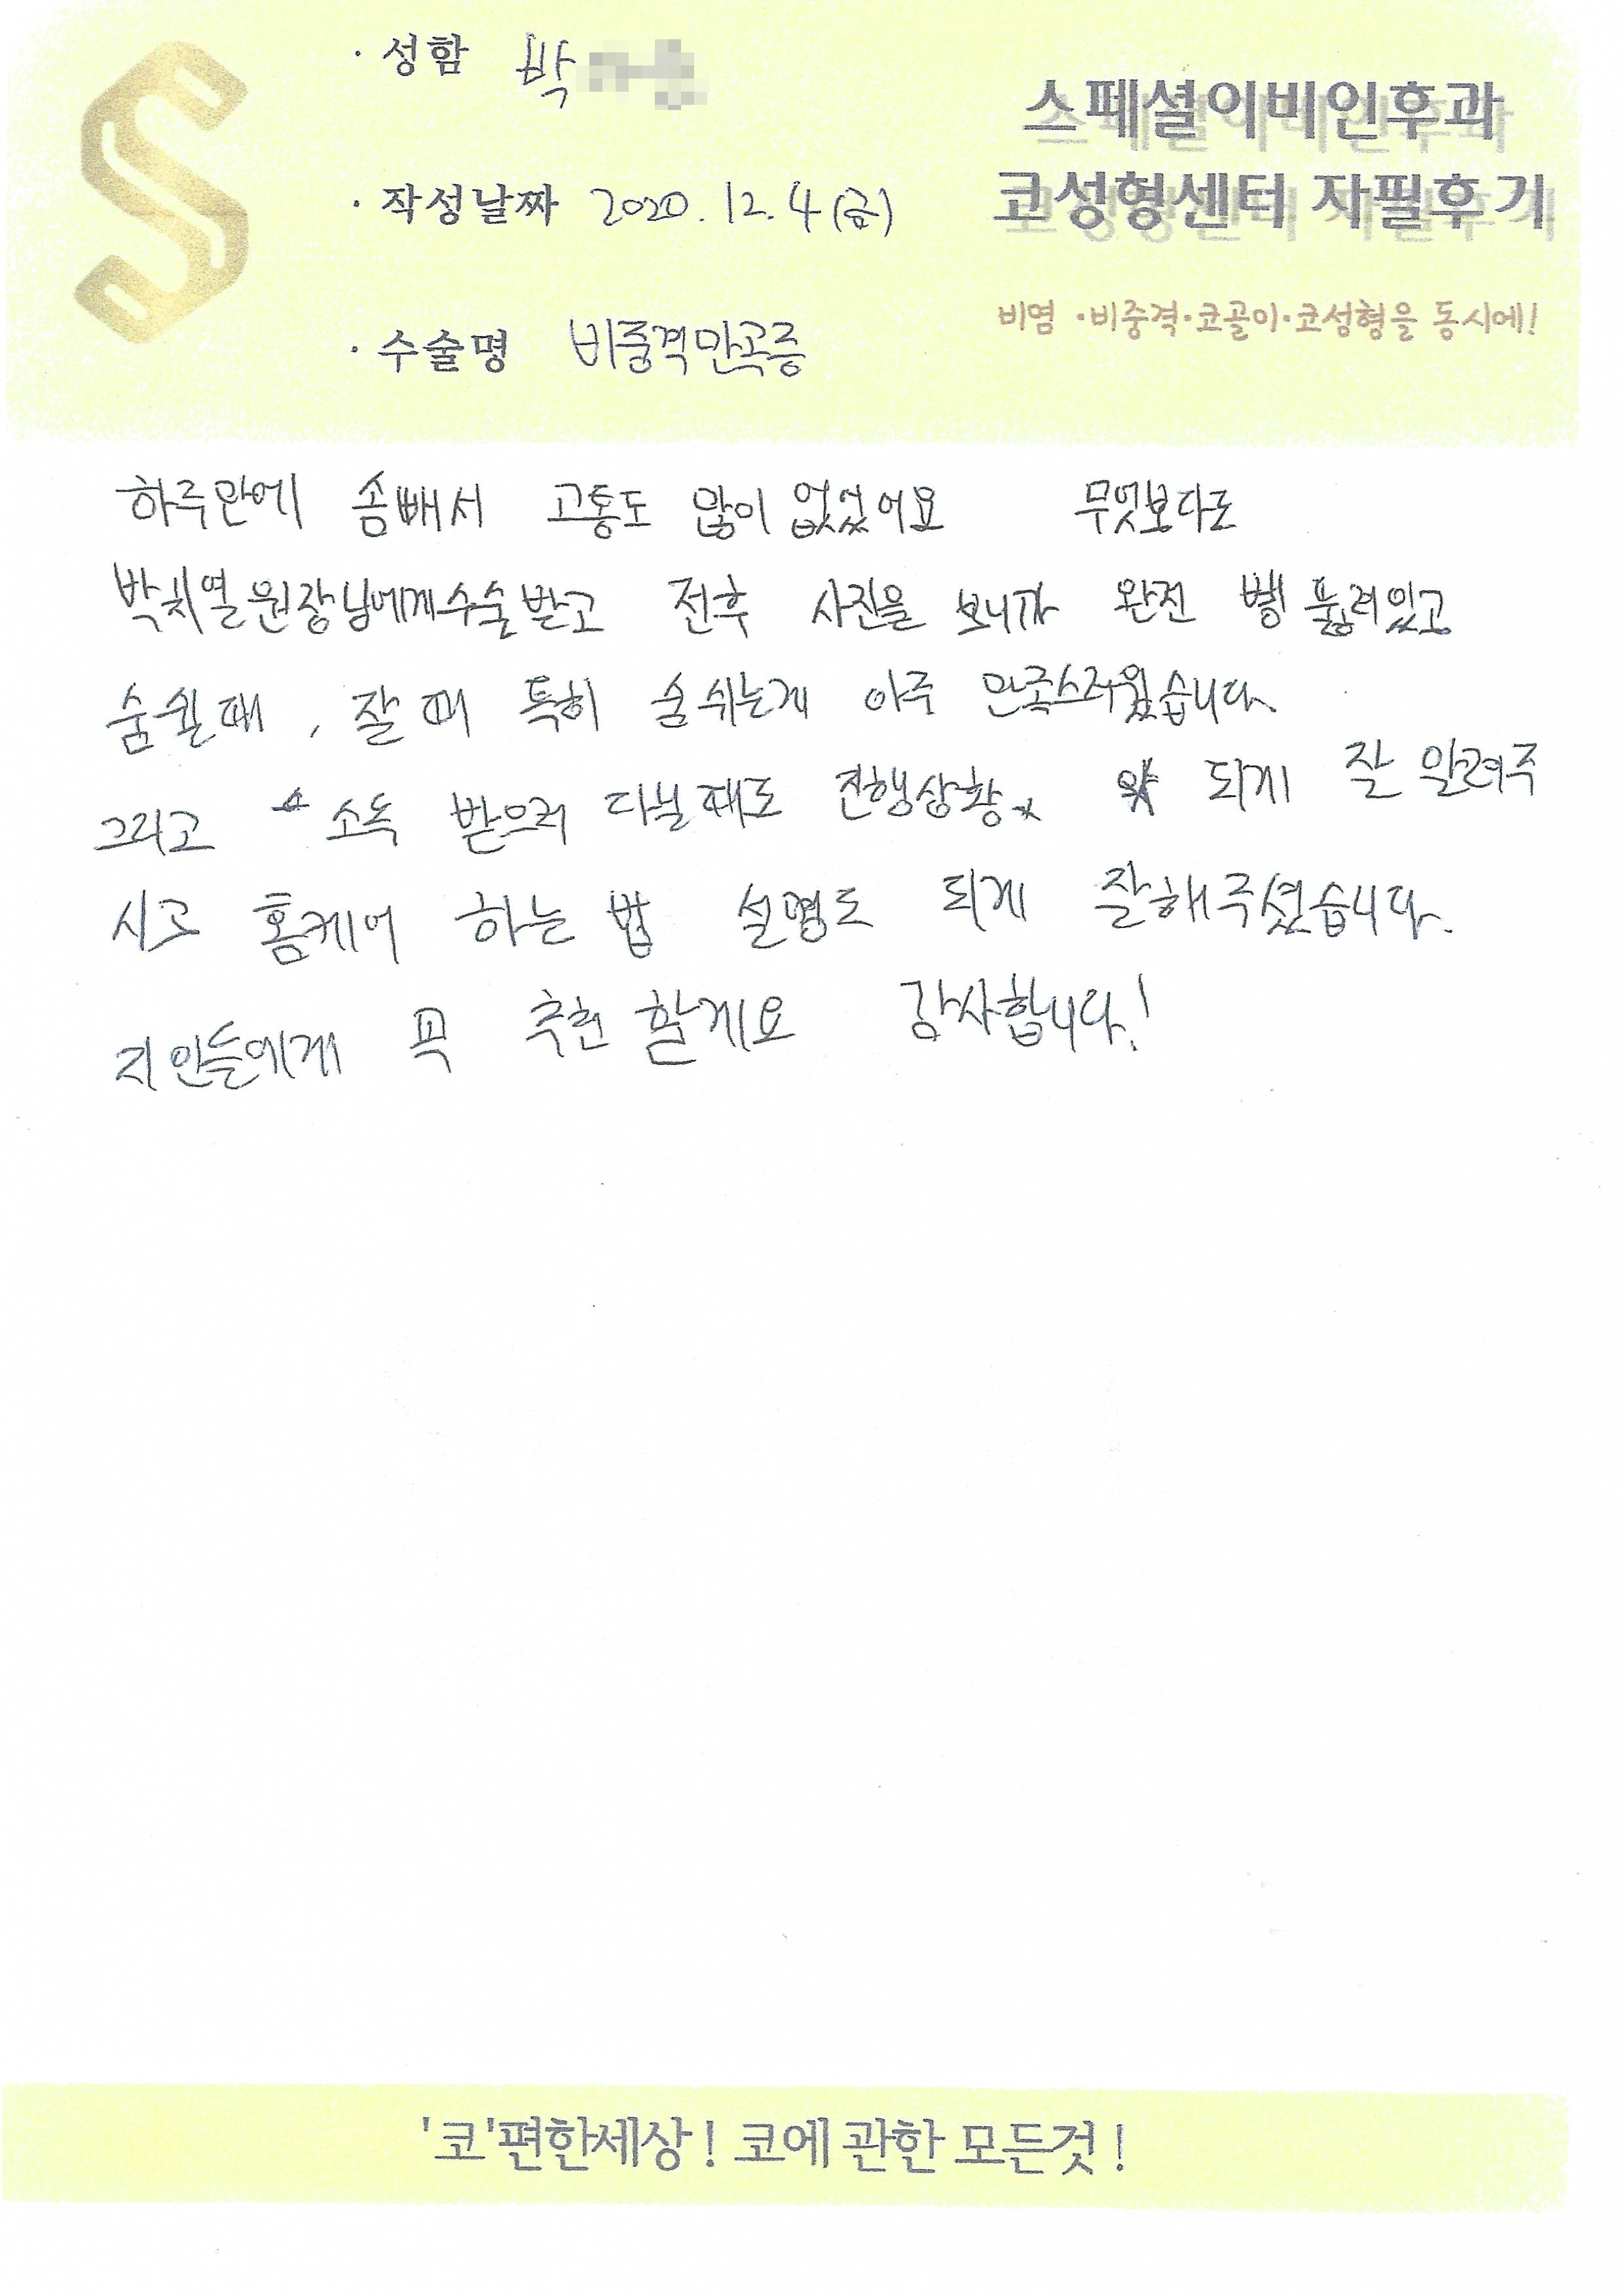 · 성함 박
스페셜이비인후과
코성형센터 자필후기
· 작성날짜 2020. 12. 4 (금)
비염 · 비중격 · 코골이 · 코성형을 동시에!
· 수술명 비중격만곡증
하루만에 솜빼서 고통도 많이 없었어요 무엇보다도
박치열원장님에게수술받고 전후 사진을 보니까 완전 뻥 뚫려있고
숨쉴때, 잘때 특히 숨쉬는게 아주 만족스러웠습니다.
그리고 소독 받으러 다닐때도 진행상황 되게 잘 알려주
시고 홈케어 하는 법 설명도 되게 잘해주셨습니다.
지인들에게 꼭 추천할게요 감사합니다!
'코'편한세상! 코에 관한 모든것!